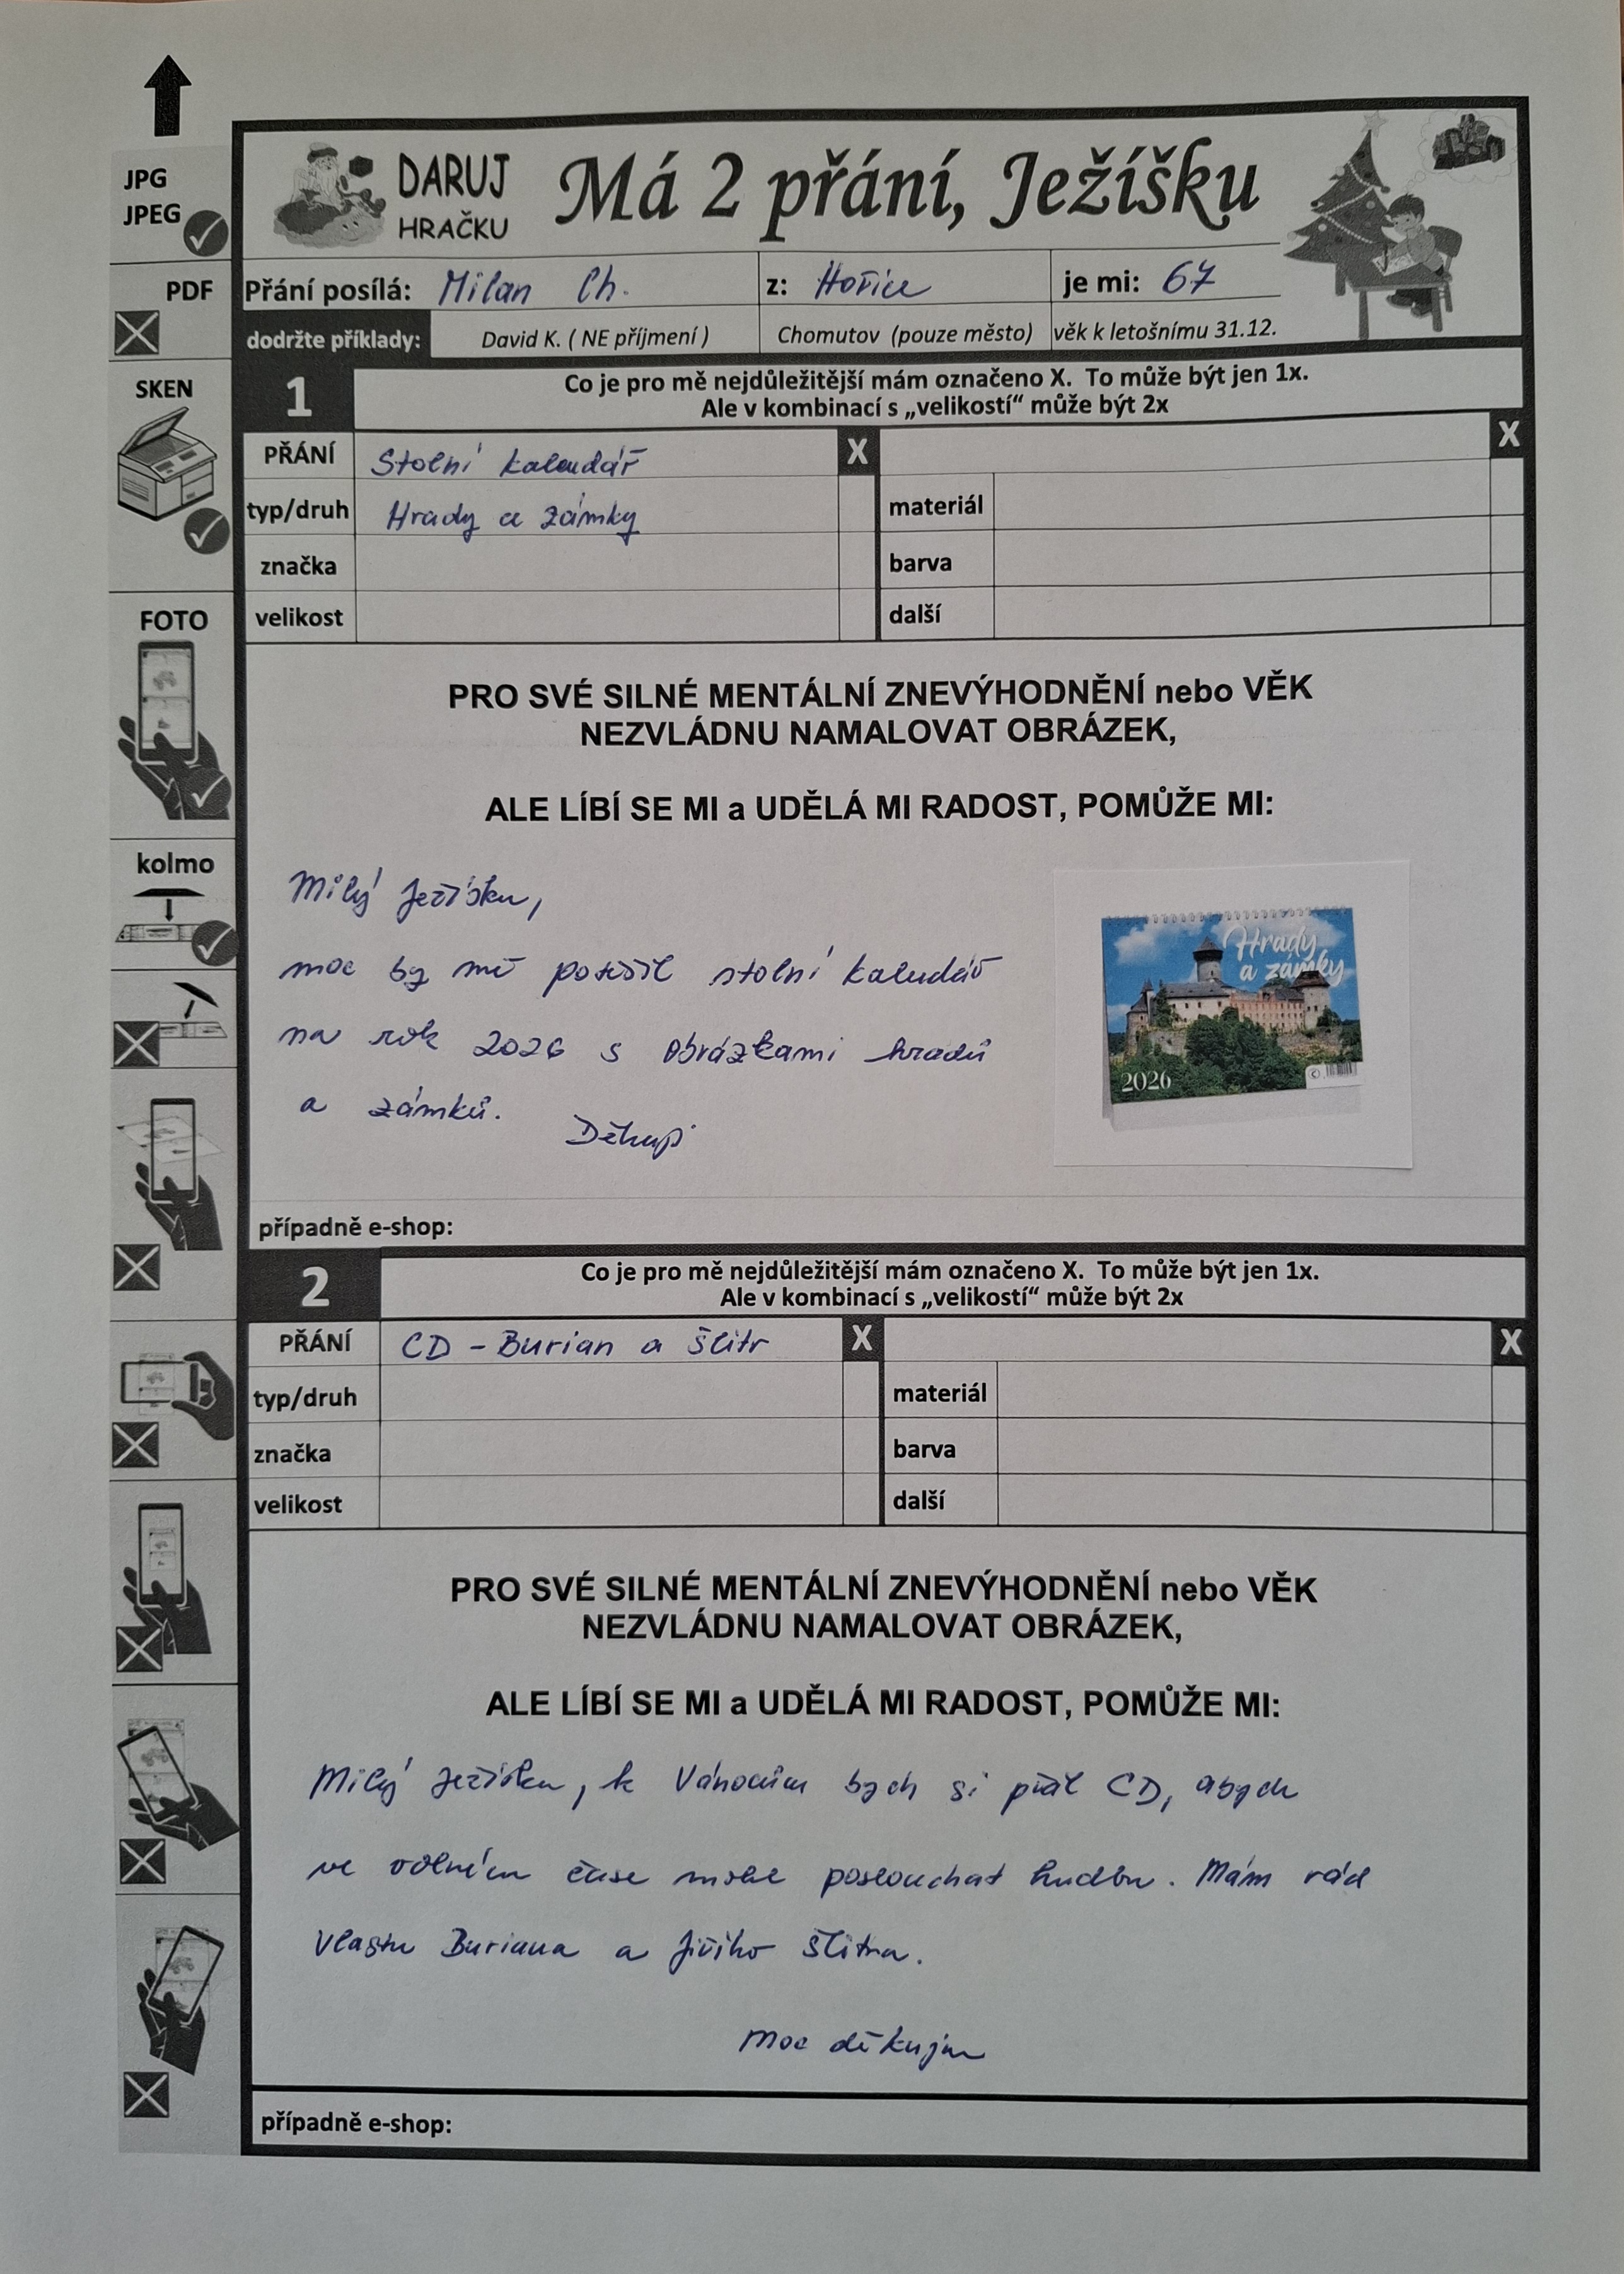 JPG
JPEG
PDF
SKEN
FOTO
kolmo
DARUJ
HRAČKU
Má 2 přání, Ježíšku
Přání posílá: Milan Ch. z: Hořice je mi: 67
dodržte příklady: David K. ( NE příjmení ) Chomutov (pouze město) věk k letošnímu 31.12.
1 Co je pro mě nejdůležitější mám označeno X. To může být jen 1x.
Ale v kombinací s „velikostí“ může být 2x
PŘÁNÍ Stolní kalendář X X
typ/druh Hrady a zámky materiál
značka barva
velikost další
PRO SVÉ SILNÉ MENTÁLNÍ ZNEVÝHODNĚNÍ nebo VĚK
NEZVLÁDNU NAMALOVAT OBRÁZEK,
ALE LÍBÍ SE MI a UDĚLÁ MI RADOST, POMŮŽE MI:
Milý Ježíšku,
moc by mě potěšil stolní kalendář
na rok 2026 s obrázkami hradů
a zámků.
Děkuji
Hrady
a zámky
2026
případně e-shop:
2 Co je pro mě nejdůležitější mám označeno X. To může být jen 1x.
Ale v kombinací s „velikostí“ může být 2x
PŘÁNÍ CD - Burian a Šlitr X X
typ/druh materiál
značka barva
velikost další
PRO SVÉ SILNÉ MENTÁLNÍ ZNEVÝHODNĚNÍ nebo VĚK
NEZVLÁDNU NAMALOVAT OBRÁZEK,
ALE LÍBÍ SE MI a UDĚLÁ MI RADOST, POMŮŽE MI:
Milý Ježíšku, k Vánocům bych si přál CD, abych
ve volném čase mohl poslouchat hudbu. Mám rád
Vlastu Buriana a Jiřího Šlitra.
Moc děkuju
případně e-shop: